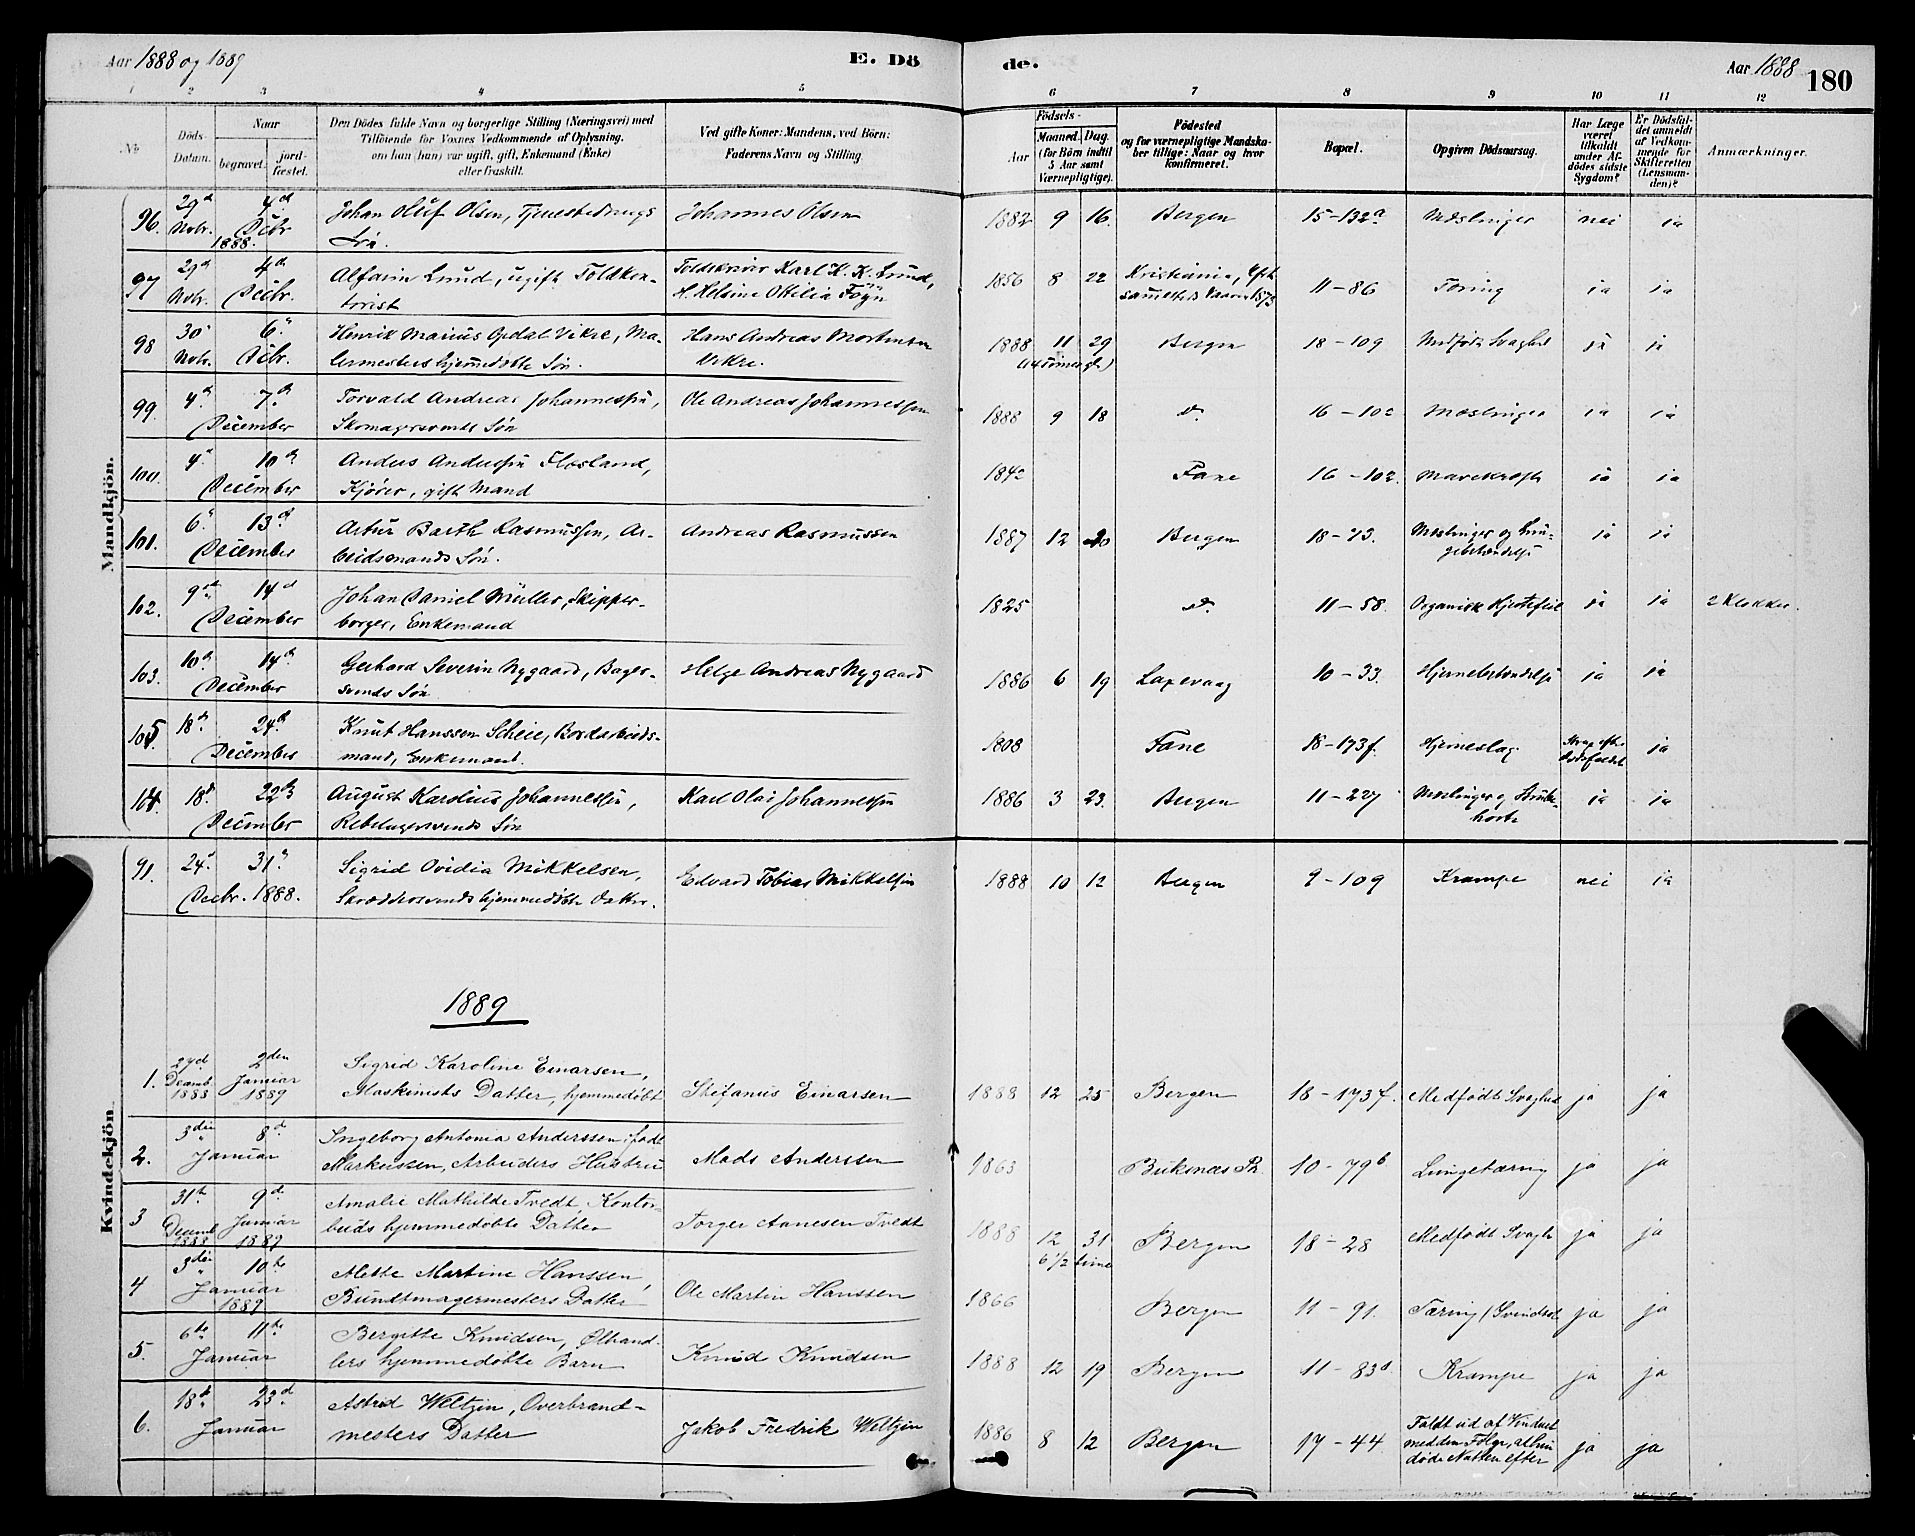 Aar 1888 og 1889
E. Dö
de.
Aar 1888
180
1 2 3 4 5 6 7 8 9 10 11 12
No
Döds-
Datum.
Naar
begravet.
jord-
fæstet.
Den Dödes fulde Navn og borgerlige Stilling (Næringsvei) med
Tilföiende for Voxnes Vedkommende af Oplysning,
om han (hun) var ugift, gift, Enkemand (Enke)
eller fraskilt.
Ved gifte Koner: Mandens, ved Börn:
Faderens Navn og Stilling.
Födsels-
Aar
Maaned. Dag.
(for Börn indtil
5 Aar samt
Værnepligtige).
Födested
og for værnepligtige Mandska-
ber tillige: Naar og hvor
konfirmeret.
Bopæl.
Opgiven Dödsaarsag.
Har Læge
været
tilkaldt
under Af-
dödes sidste
Sygdom?
Er Dödsfal-
det anmeldt
af Vedkom-
mende for
Skifteretten
(Lensman-
den)?
Anmærkninger.
Mandkjön.
96. 29d Novbr. 4d Dcbr 1888. Johan Oluf Olsen, Tjenestedrengs Søn. Johannes Olsen 1882 9 16. Bergen 15-132a Mæslinger nei ja
97 29d Novbr. 4de Decbr. Lund, ugift Toldkon-
torist Karl K. K. Lund, Ottilia 1856 8 22 Kristiania, 11-86 Tæring ja ja
98 30 Novbr. 6. Dcbr. Henrik Marius Opdal Vikre, Ma-
lermesters hjemmedøbte Søn. Hans Andreas Mortensen
Vikre. 1888 11 29 Bergen 18-109 Medfødt Svaghed ja ja
99. 4d 7de December Torvald Andreas Johannessen,
Skomagersvends Søn Ole Andreas Johannessen 1888 9 18 do. 16-102 Mæslinger ja ja
100. 4d 10de December Anders Anderssen Flesland,
Kjører, gift Mand 1842 Fane 16-102. Mavekræft ja ja
101. 6. 13d December Artur Barth Rasmussen, Ar-
beidsmands Søn. Andreas Rasmussen 1887 12 20 Bergen 18-23. Mæslinger og Lun-
gebetændelse ja ja
102. 9de 14d December Johan Daniel Müller, Skipper-
borger, Enkemand 1825 do. 11-58. Organisk Hjertefeil ja ja 2 Klokker.
103. 10de 14de December Gerhard Severin Nygaard, Bager-
svends Søn Helge Andreas Nygaard 1886 6 19 Laxevaag 10-33. Hjernebetændelse ja ja
105. 18de 24d December Knut Hanssen Scheie, Bordarbeids-
mand, Enkemand. 1808 Fane 18-173f. Hjerneslag Strax efter
Dødsfaldet ja
104. 18d. 22de December August Karolius Johannessen,
Rebslagersvends Søn Karl Olai Johannessen 1886 3 23. Bergen 11-227 Mæslinger og Strube-
hoste ja ja
Kvindekjön.
91. 24d 31. Decbr. 1888. Sigrid Ovidia Mikkelsen,
Skræddersvends hjemmedøbte Datter. Edvard Tobias Mikkelsen 1888 10 12 Bergen 9-109 Krampe nei ja
1889
1. 27d Decemb. 1888 2den Januar 1889 Sigrid Karoline Einarsen,
Maskinists Datter, hjemmedøbt Stefanus Einarsen 1888 12 25 Bergen 18-173f. Medfødt Svaghed ja ja
2. 3die 8d Januar Ingeborg Antonia Anderssen, født
Markussen, Arbeiders Hustru Mads Anderssen 1863 Buksnæs Pr. 10-79b Lungetæring ja ja
3 31te Decemb. 1888 9d Januar 1889 Amalie Mathilde Tvedt, Kontor-
buds hjemmedøbte Datter Torger Aanesen Tvedt 1888 12 31
6 1/2 time Bergen 18-28 Medfødt Svagh. ja ja
4 3die 10de Januar 1889 Mette Martine Hanssen,
Bundtmagermesters Datter Ole Martin Hanssen 1866 Bergen 11-91. Tæring (Svindsot ja ja
5. 6te 11te Januar Bergitte Knudsen, Ølhand-
lers hjemmedøbte Barn Knud Knudsen 1888 12 19 Bergen 11-83d Krampe ja ja
6. 18de 23d Januar Astrid Weltzin, Overbrand-
mesters Datter Jakob Fredrik Weltzin 1886 8 12 Bergen 17-44 Faldt ud af Vinduet
med den Følge, at hun
døde Natten efter ja ja